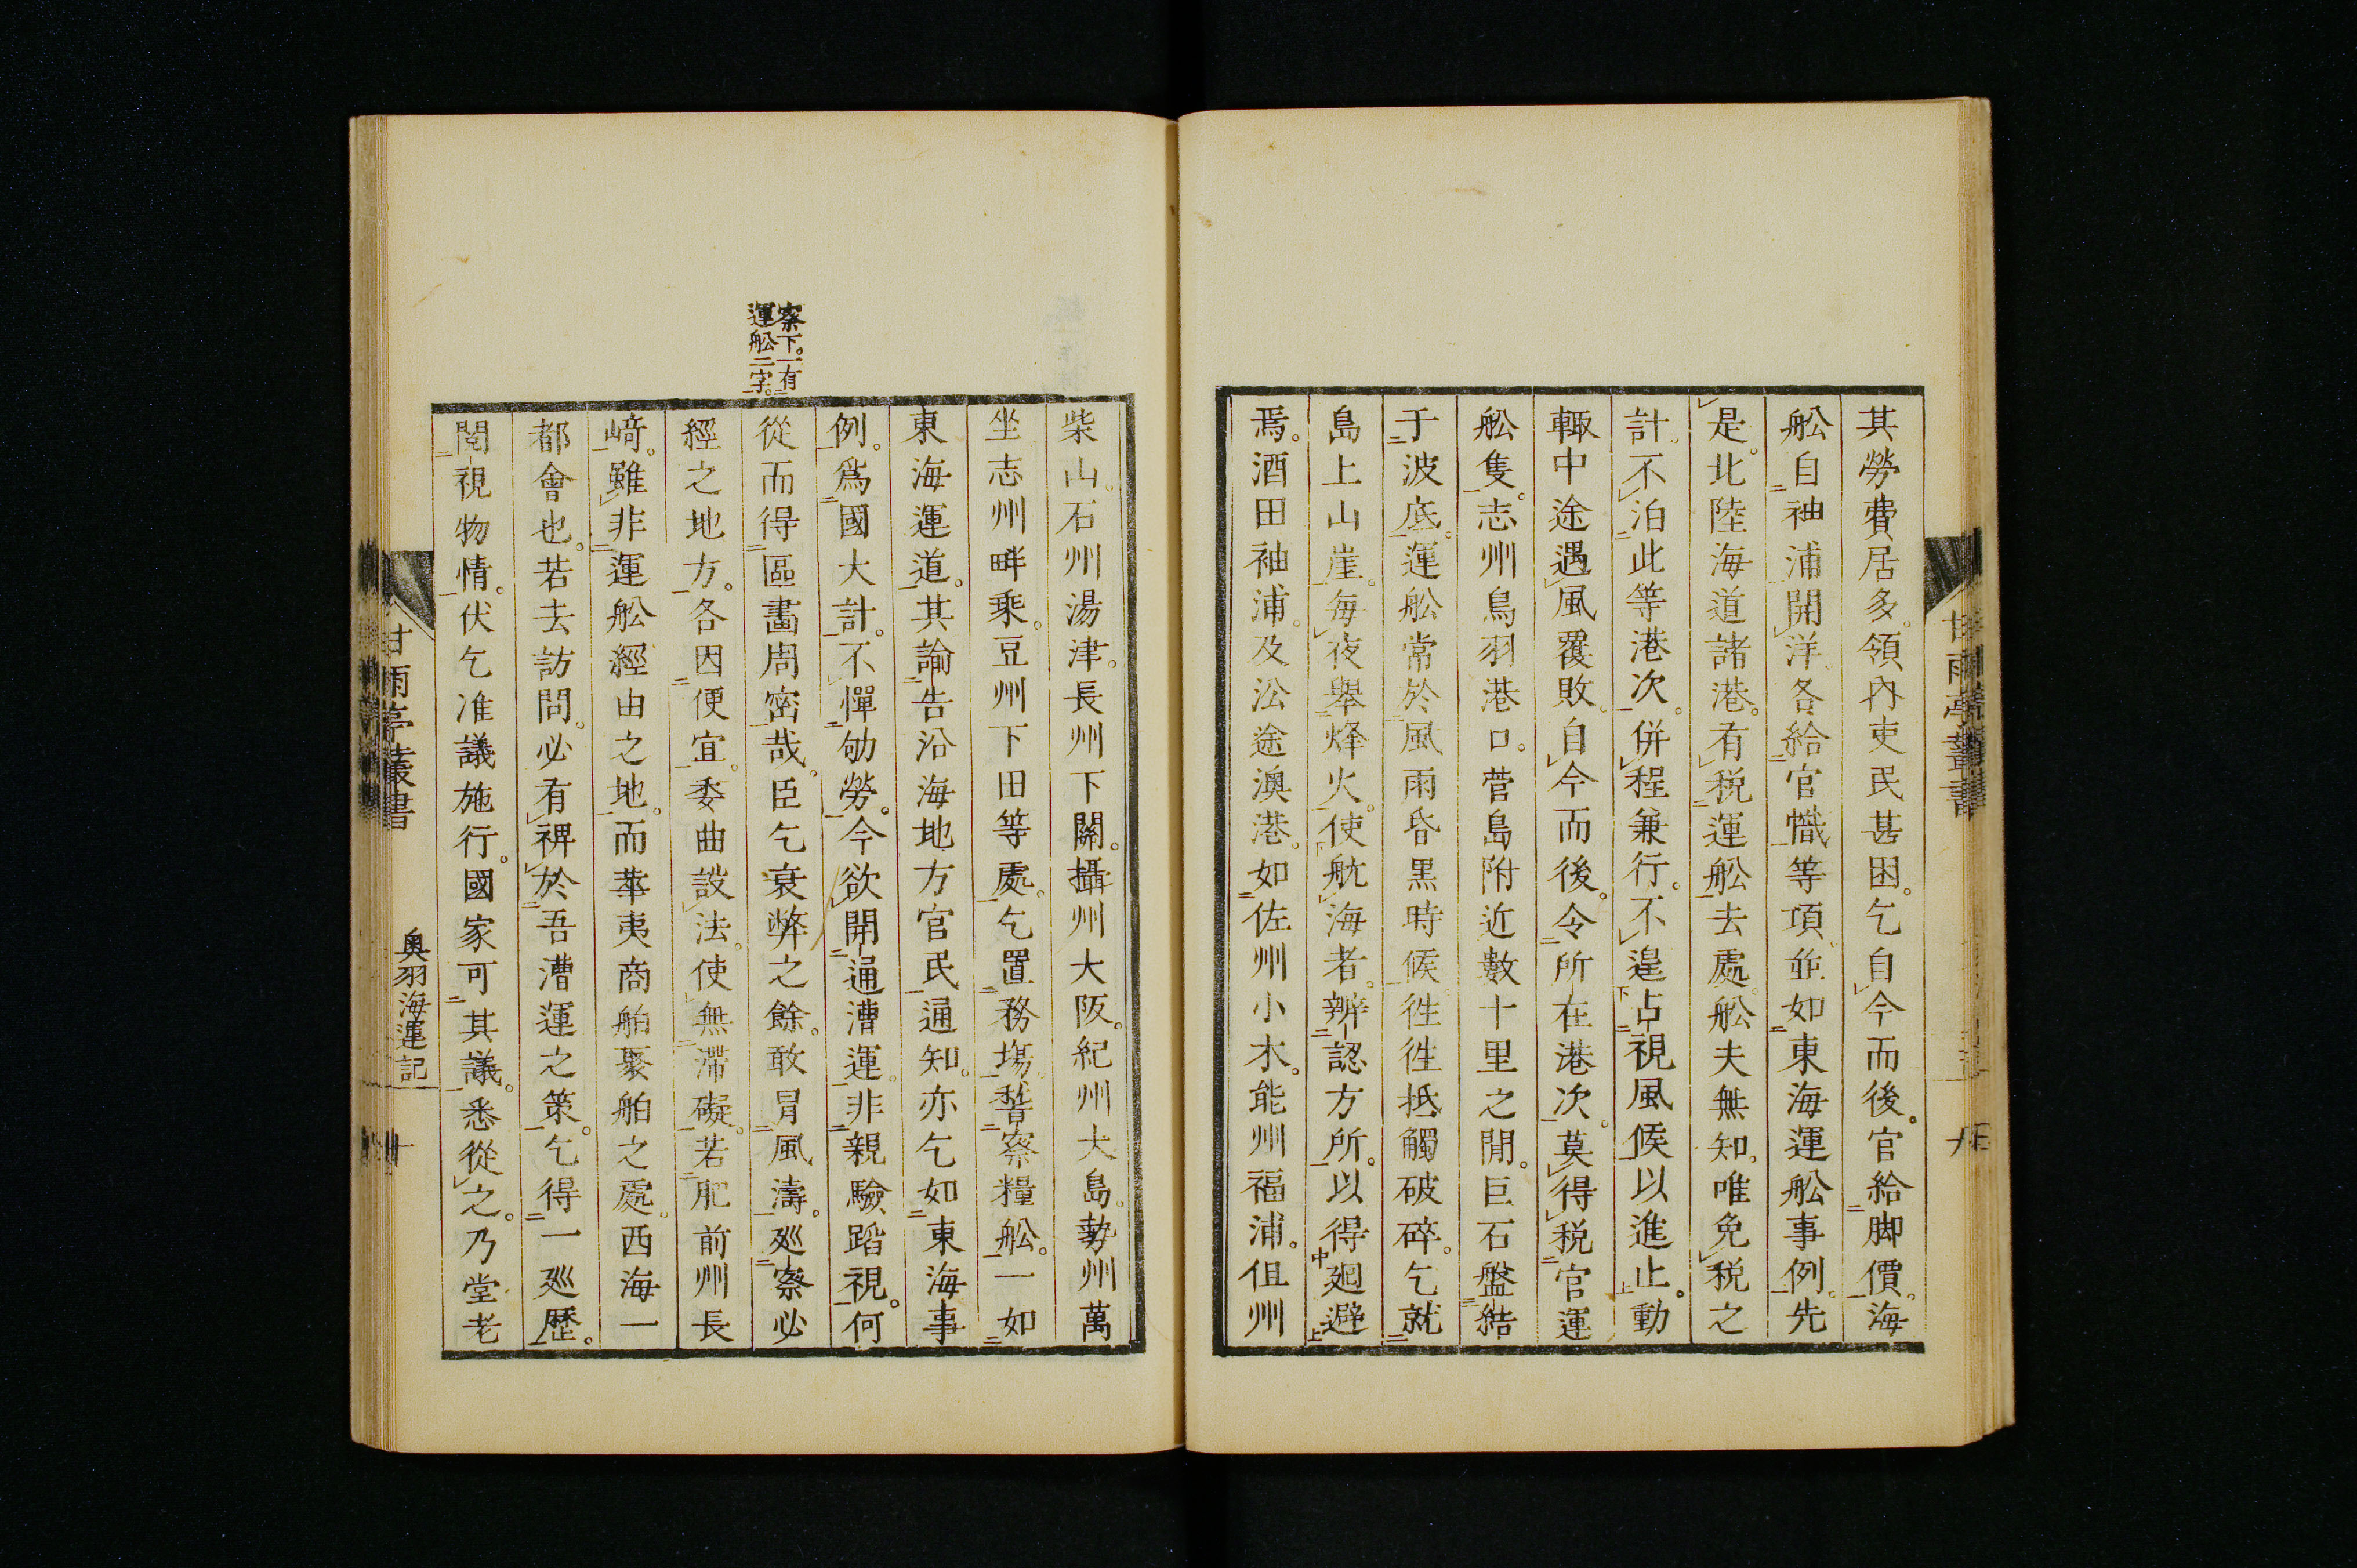 其勞費居多。領內吏民甚困。乞自今而後。官給脚價。海
舩自袖浦開洋。各給官幟等項。並如東海運舩事例。先
是。北陸海道諸港。有税運舩去處。舩夫無知。唯免税之
計。不泊此等港次。併程兼行。不遑占視風候以進止。動
輙中途遇風覆敗。自今而後。令所在港次。莫得税官運
舩隻。志州鳥羽港口。菅島附近數十里之間。巨石盤結
于波底。運舩常於風雨昏黒時候。徃徃抵觸破碎。乞就
島上山崖。每夜舉烽火。使航海者。辨認方所。以得廻避
焉。酒田袖浦。及㳂途澳港。如佐州小木。能州福浦。但州
柴山。石州湯津。長州下關。攝州大阪。紀州大島。勢州萬
坐志州畔乘。豆州下田等處。乞置務場。詧察糧舩。一如
東海運道。其諭告沿海地方官民通知。亦乞如東海事
例。爲國大計。不憚劬勞。今欲開通漕運。非親驗蹈視。何
從而得區畫周密哉。臣乞衰弊之餘。敢冒風濤。廵察必
經之地方。各因便宜。委曲設法。使無滯礙。若肥前州長
﨑。雖非運舩經由之地。而華夷商舶聚舶之處。西海一
都會也。若去訪問。必有裨於吾漕運之策。乞得一廵歷。
閲視物情。伏乞准議施行。國家可其議。悉從之。乃堂老
察下。一有
運舩二字。
甘雨亭叢書
奥羽海運記
十